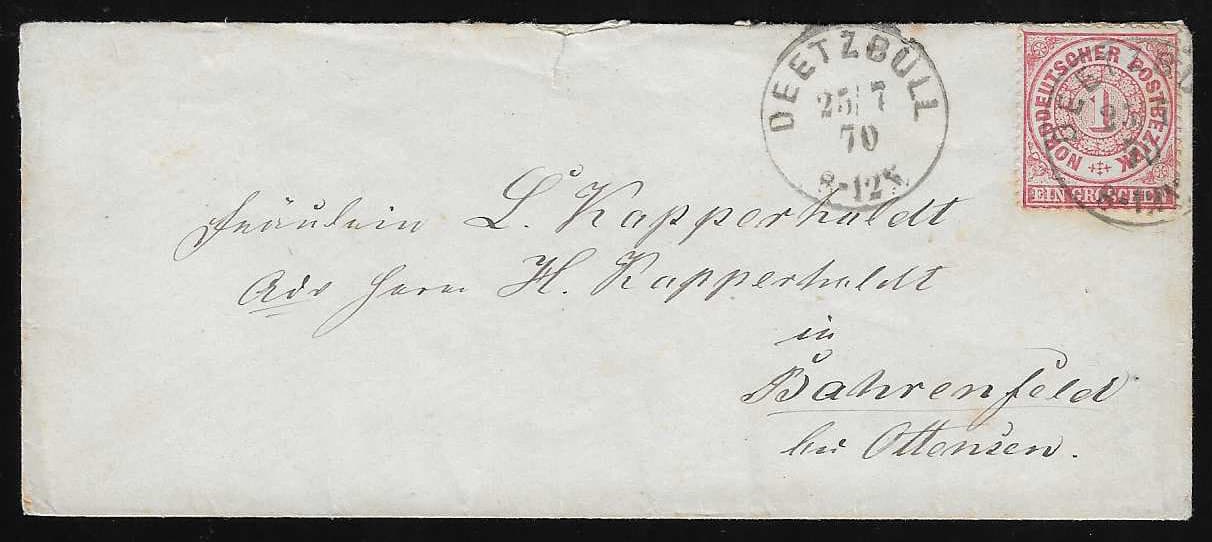 DEETZBÜLL
25 7
70
8-12V.
NORDDEUTSCHER POSTBEZIRK
1
EIN GROSCHEN
DEETZBÜLL
25 7
70
8-12V.
Fräulein L. Kapperholdt
Adr Herrn H. Kapperholdt
in
Bahrenfeld
bei Ottensen.